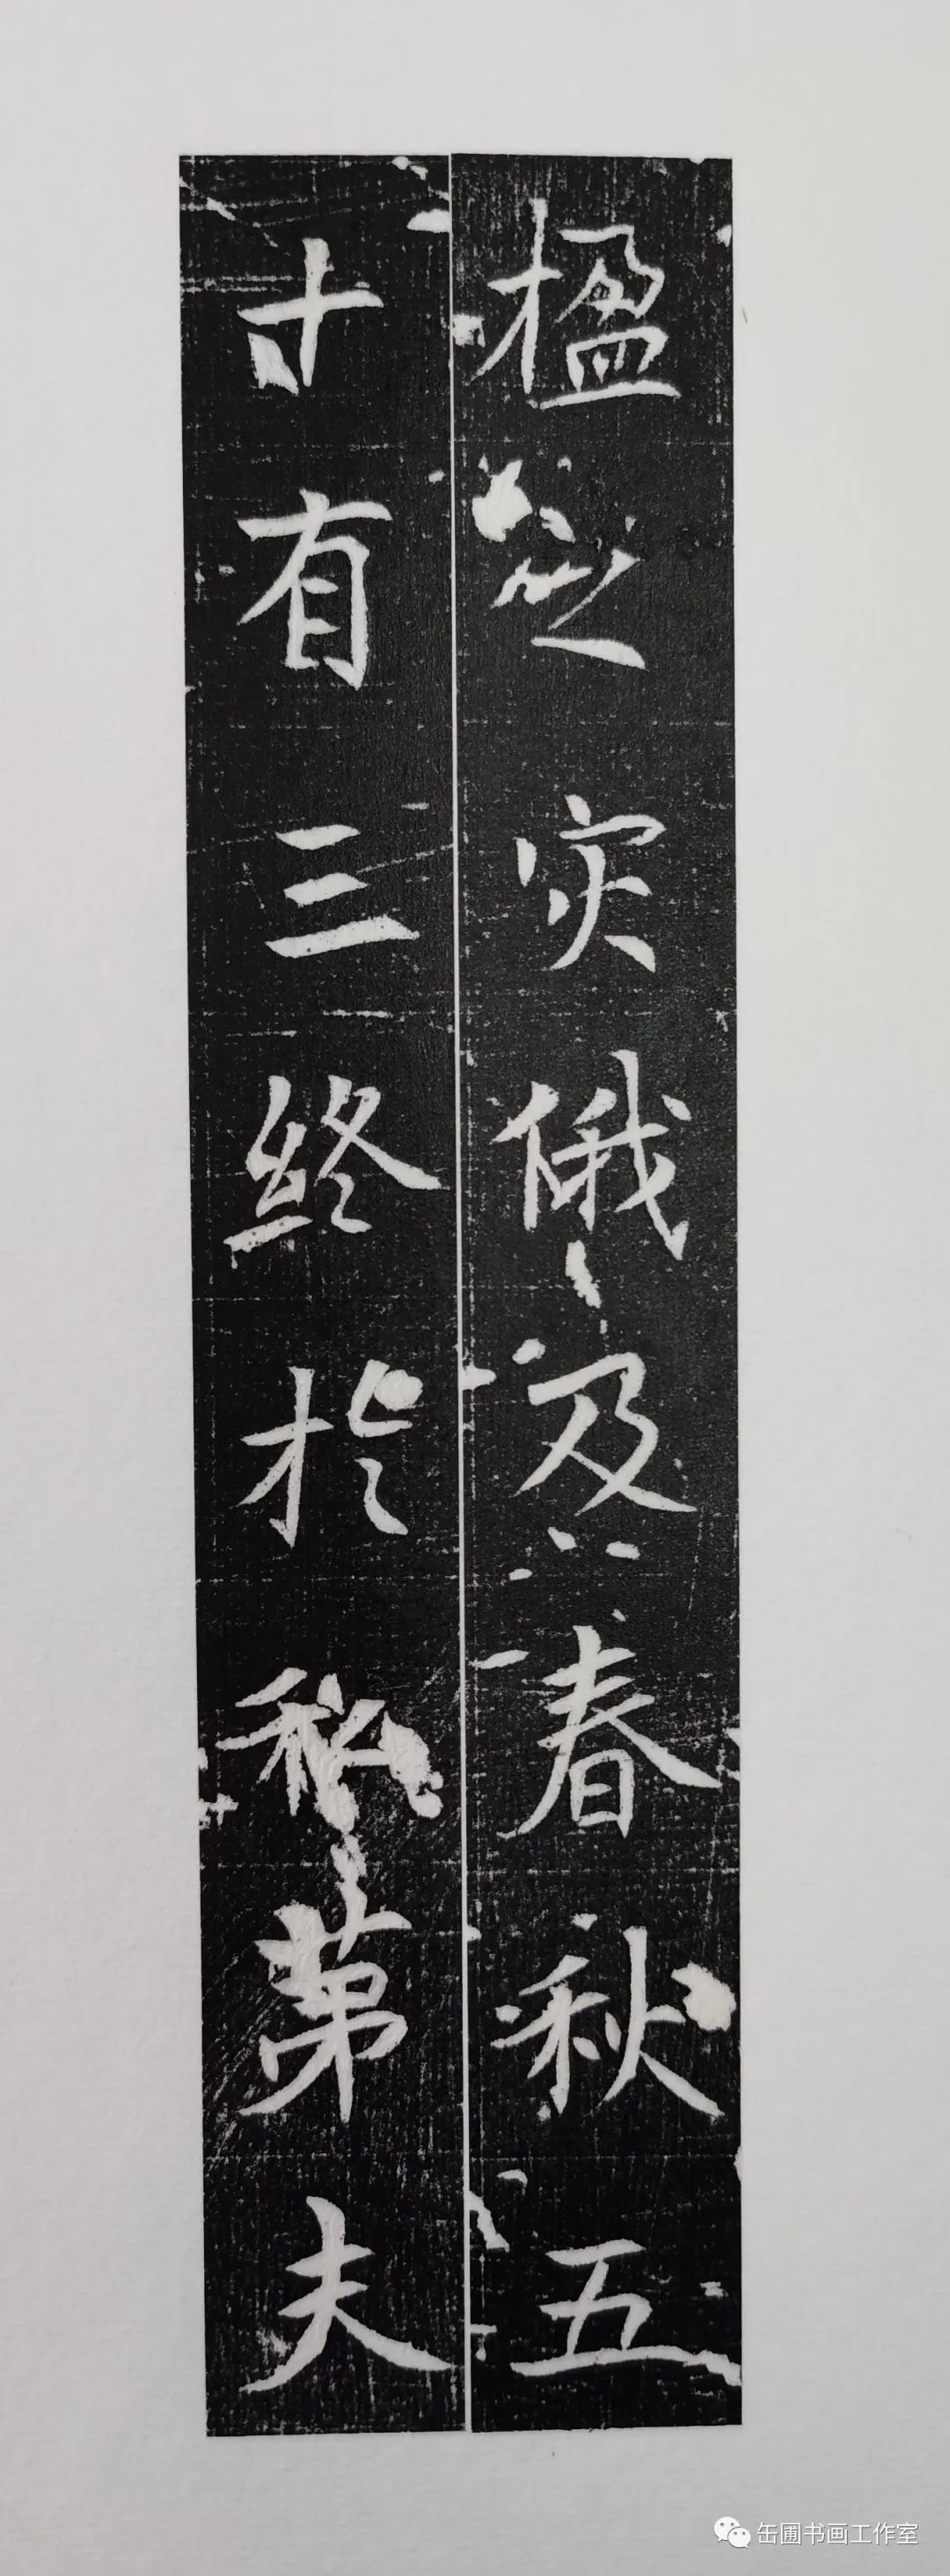 楹之灾俄及春秋五
十有三终於私第夫
缶圃书画工作室